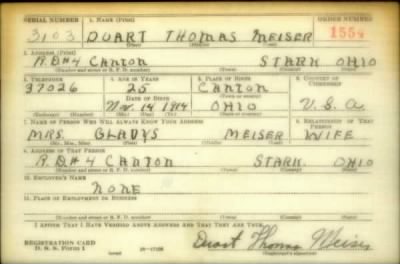 SERIAL NUMBER 1. NAME (Print) ORDER NUMBER
3103 DUART THOMAS MEISER 155
(First) (Middle) (Last)
2. ADDRESS (Print)
R.D#4 CANTON STARK OHIO
(Number and street or R. F. D. number) (Town) (County) (State)
3. TELEPHONE 4. AGE IN YEARS 5. PLACE OF BIRTH 6. COUNTRY OF CITIZENSHIP
37026 25 CANTON
DATE OF BIRTH (Town or county)
NOV. 14 1914 OHIO U.S.A.
(Exchange) (Number) (Mo.) (Day) (Yr.) (State or country)
7. NAME OF PERSON WHO WILL ALWAYS KNOW YOUR ADDRESS 8. RELATIONSHIP OF THAT PERSON
MRS. GLADYS MEISER WIFE
(Mr., Mrs., Miss) (First) (Middle) (Last)
9. ADDRESS OF THAT PERSON
R.D#4 CANTON STARK. OHIO
(Number and street or R. F. D. number) (Town) (County) (State)
10. EMPLOYER'S NAME
NONE
11. PLACE OF EMPLOYMENT OR BUSINESS
(Number and street or R. F. D. number) (Town) (County) (State)
I AFFIRM THAT I HAVE VERIFIED ABOVE ANSWERS AND THAT THEY ARE TRUE.
REGISTRATION CARD
D. S. S. Form 1 Duart Thomas Meiser
(Registrant's signature)